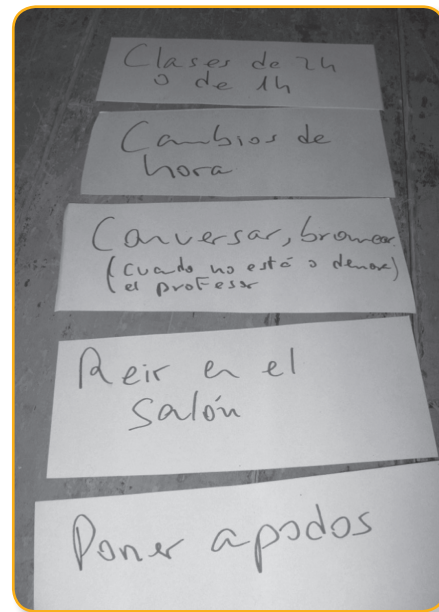 Clases de 2h
o de 1h
Cambios de
hora
Conversar, bromear
(cuando no está o demora)
el profesor
Reir en el
salón
Poner apodos